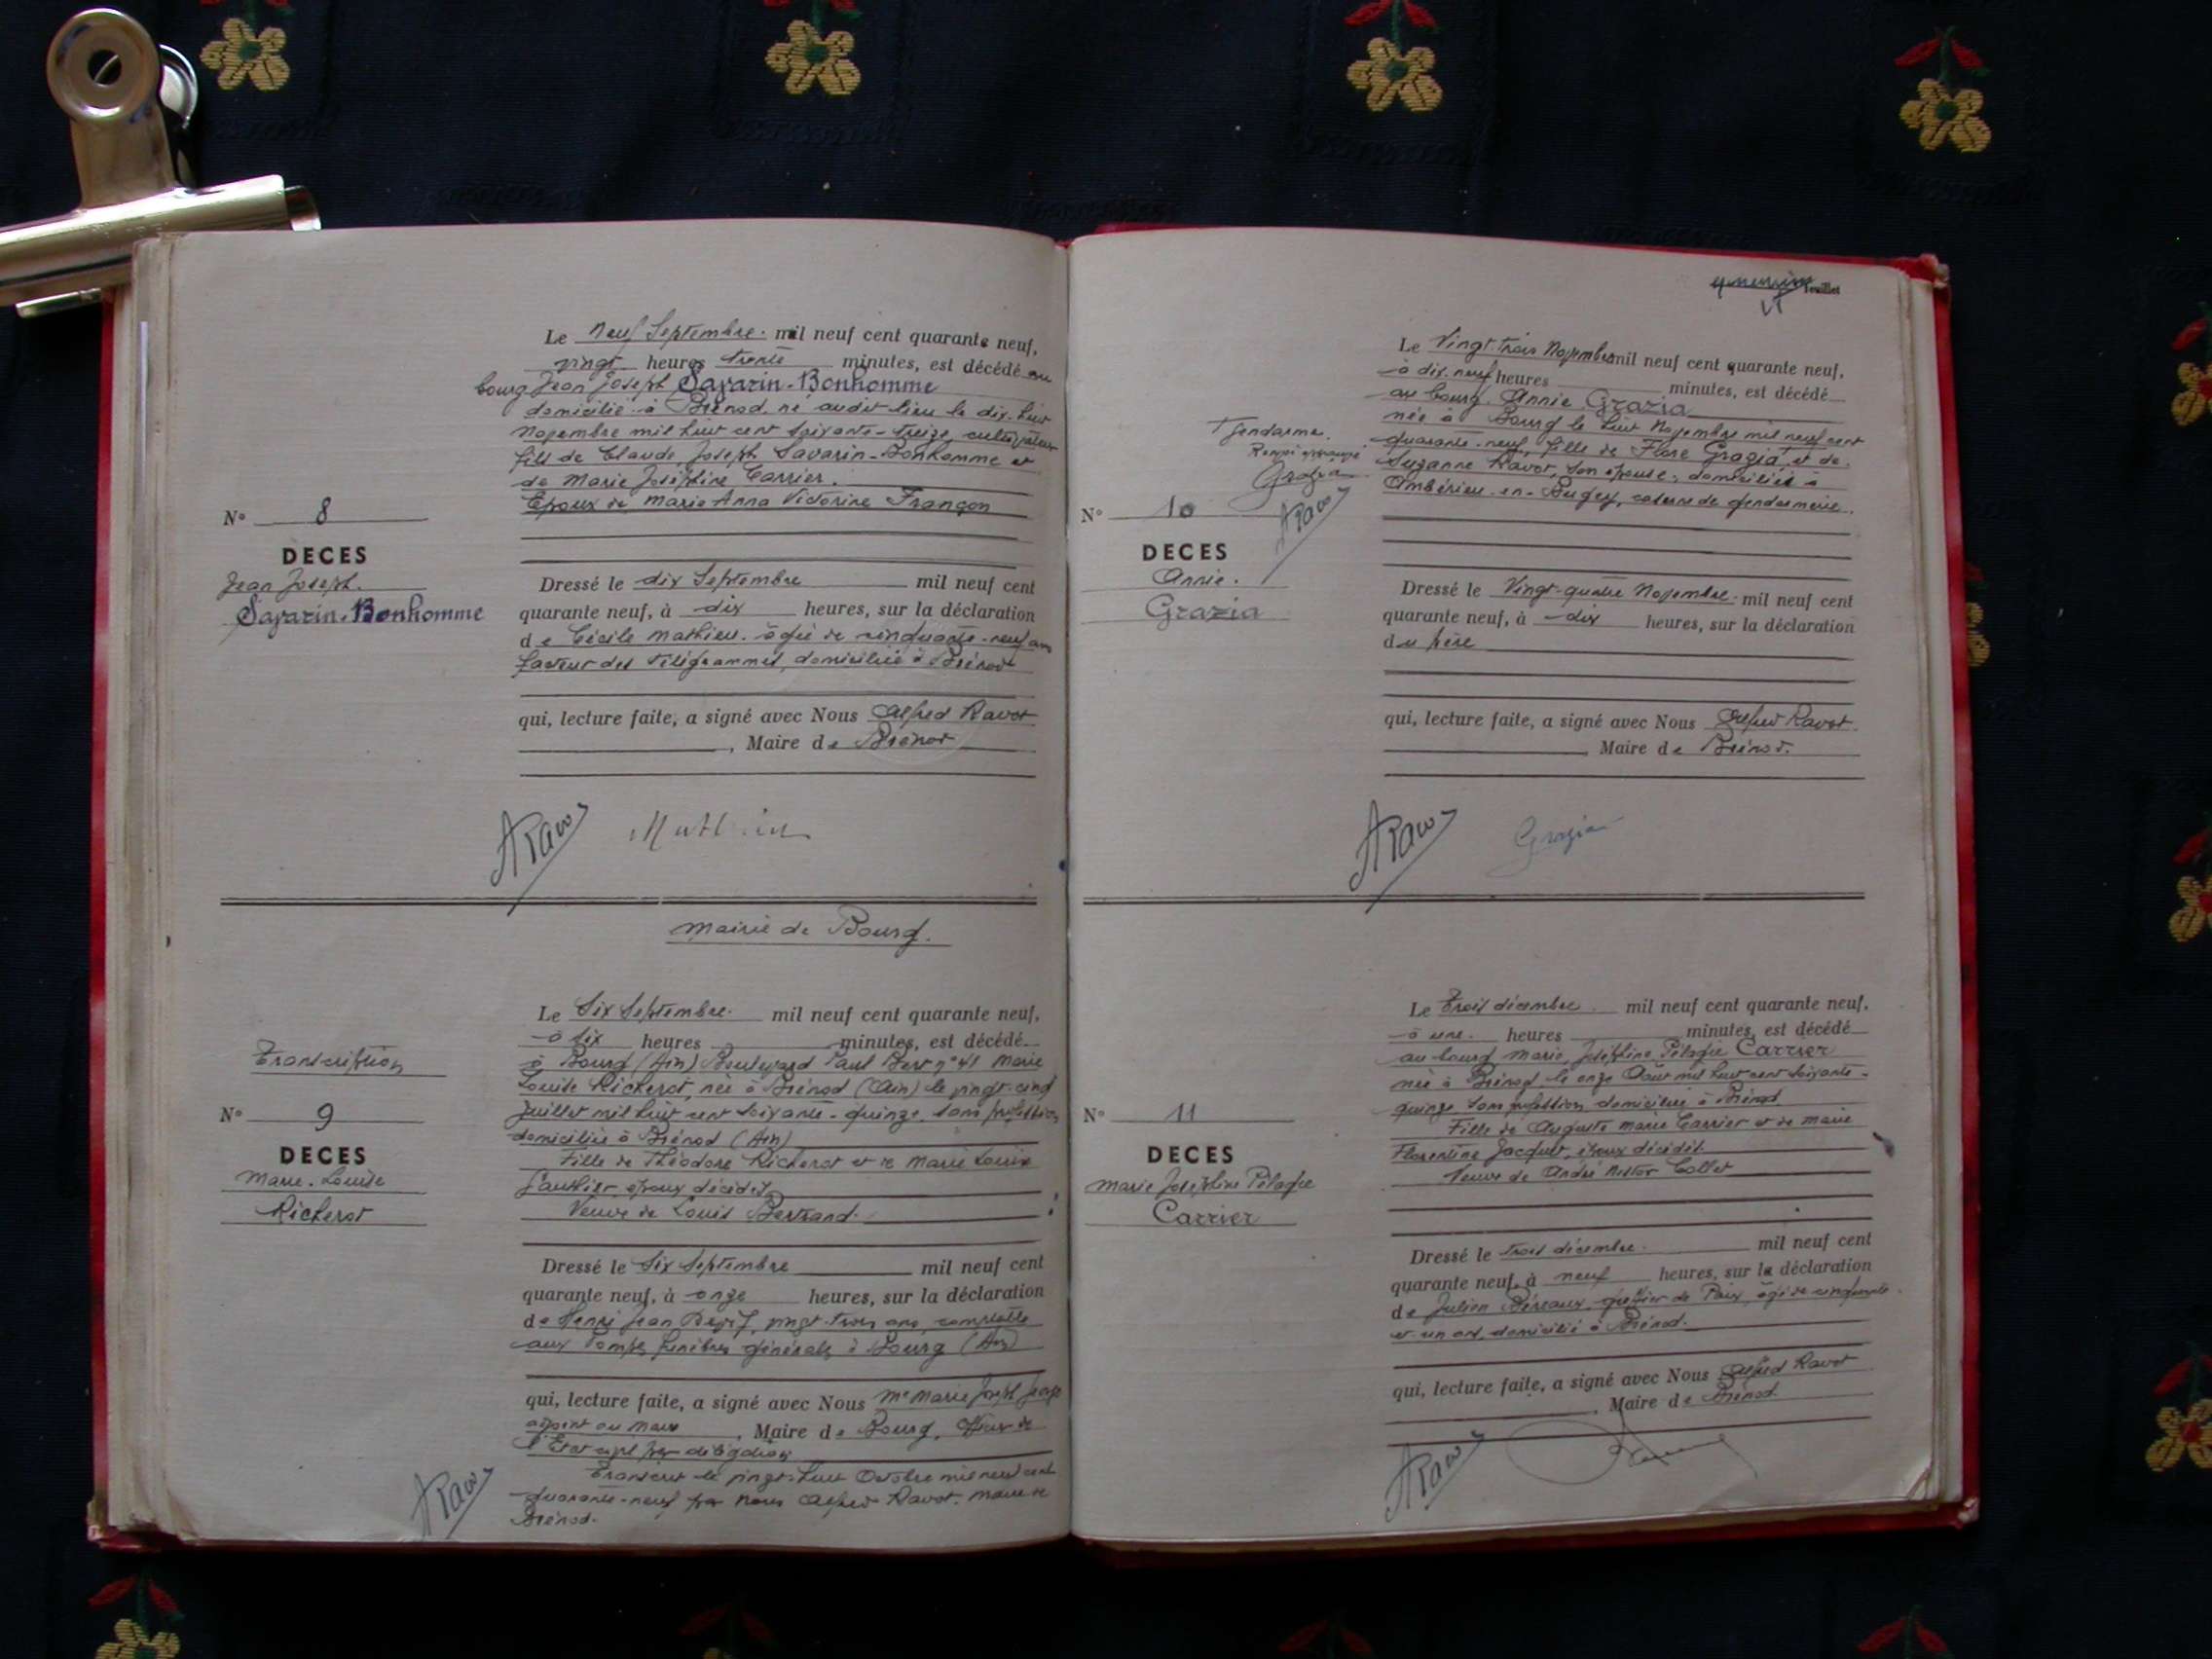 Le Neuf Septembre mil neuf cent quarante neuf,
vingt heures trente minutes, est décédé au
bourg Jean Joseph Savarin-Bonhomme
domicilié à Brénod, né audit lieu le dix-huit
Novembre mil huit cent soixante-treize, cultivateur
fils de Claude Joseph Savarin-Bonhomme et
de Marie Joséphine Carrier.
Epoux de Marie Anna Victorine Françon
N° 8
DECES
Jean Joseph.
Savarin-Bonhomme
Dressé le dix Septembre mil neuf cent
quarante neuf, à dix heures, sur la déclaration
de Cécile Mathieu. âgée de cinquante-neuf ans
facteur des télégrammes, domiciliée à Brénod
qui, lecture faite, a signé avec Nous Alfred Ravot
, Maire de Brénod
ARavot Mathieu
Mairie de Bourg.
Le Six Septembre mil neuf cent quarante neuf,
à six heures minutes, est décédé
à Bourg (Ain) Boulevard Paul Bert n° 41 Marie
Louise Richerot, née à Brénod (Ain) le vingt cinq
Juillet mil huit cent soixante-quinze. sans profession
domiciliée à Brénod (Ain)
Fille de Théodore Richerot et de Marie Louise
Gauthier époux décédés
Veuve de Louis Bertrand.
Transcription
N° 9
DECES
Marie-Louise
Richerot
Dressé le Six Septembre mil neuf cent
quarante neuf, à onze heures, sur la déclaration
de Henri Jean vingt-trois ans, comptable
aux Pompes funèbres générales à Bourg (Ain)
qui, lecture faite, a signé avec Nous Marie Joseph
adjoint au Maire, Maire de Bourg, Officier de
l'Etat civil par délégation
Transcrit le vingt-huit Octobre mil neuf cent
quarante-neuf par Nous Alfred Ravot. Maire de
Brénod.
ARavot
feuillet
Le Vingt-trois Novembre mil neuf cent quarante neuf,
à dix-neuf heures minutes, est décédé
au bourg. Annie Grazia
née à Bourg le huit Novembre mil neuf cent
quarante-neuf, fille de Flore Grazia, et de
Suzanne Ravot, son épouse, domiciliés à
Ambérieu-en-Bugey, caserne de gendarmerie.
Gendarme.
Renvoi approuvé
Grazia
ARavot
N° 10
DECES
Annie.
Grazia
Dressé le Vingt-quatre Novembre mil neuf cent
quarante neuf, à dix heures, sur la déclaration
du père
qui, lecture faite, a signé avec Nous Alfred Ravot.
Maire de Brénod.
ARavot Grazia
Le Trois décembre mil neuf cent quarante neuf,
à une. heures minutes, est décédé
au bourg Marie Joséphine Pélagie Carrier
née à Brénod le onze Août mil huit cent soixante-
quinze. sans profession domiciliée à Brénod
Fille de Auguste Marie Carrier et de Marie
Florentine Jacquet, époux décédés.
Veuve de André Nestor Collet
N° 11
DECES
Marie Joséphine Pélagie
Carrier
Dressé le trois décembre mil neuf cent
quarante neuf, à neuf heures, sur la déclaration
de Julien greffier de Paix, âgé de cinquante
et un ans, domicilié à Brénod.
qui, lecture faite, a signé avec Nous Alfred Ravot
, Maire de Brénod
ARavot